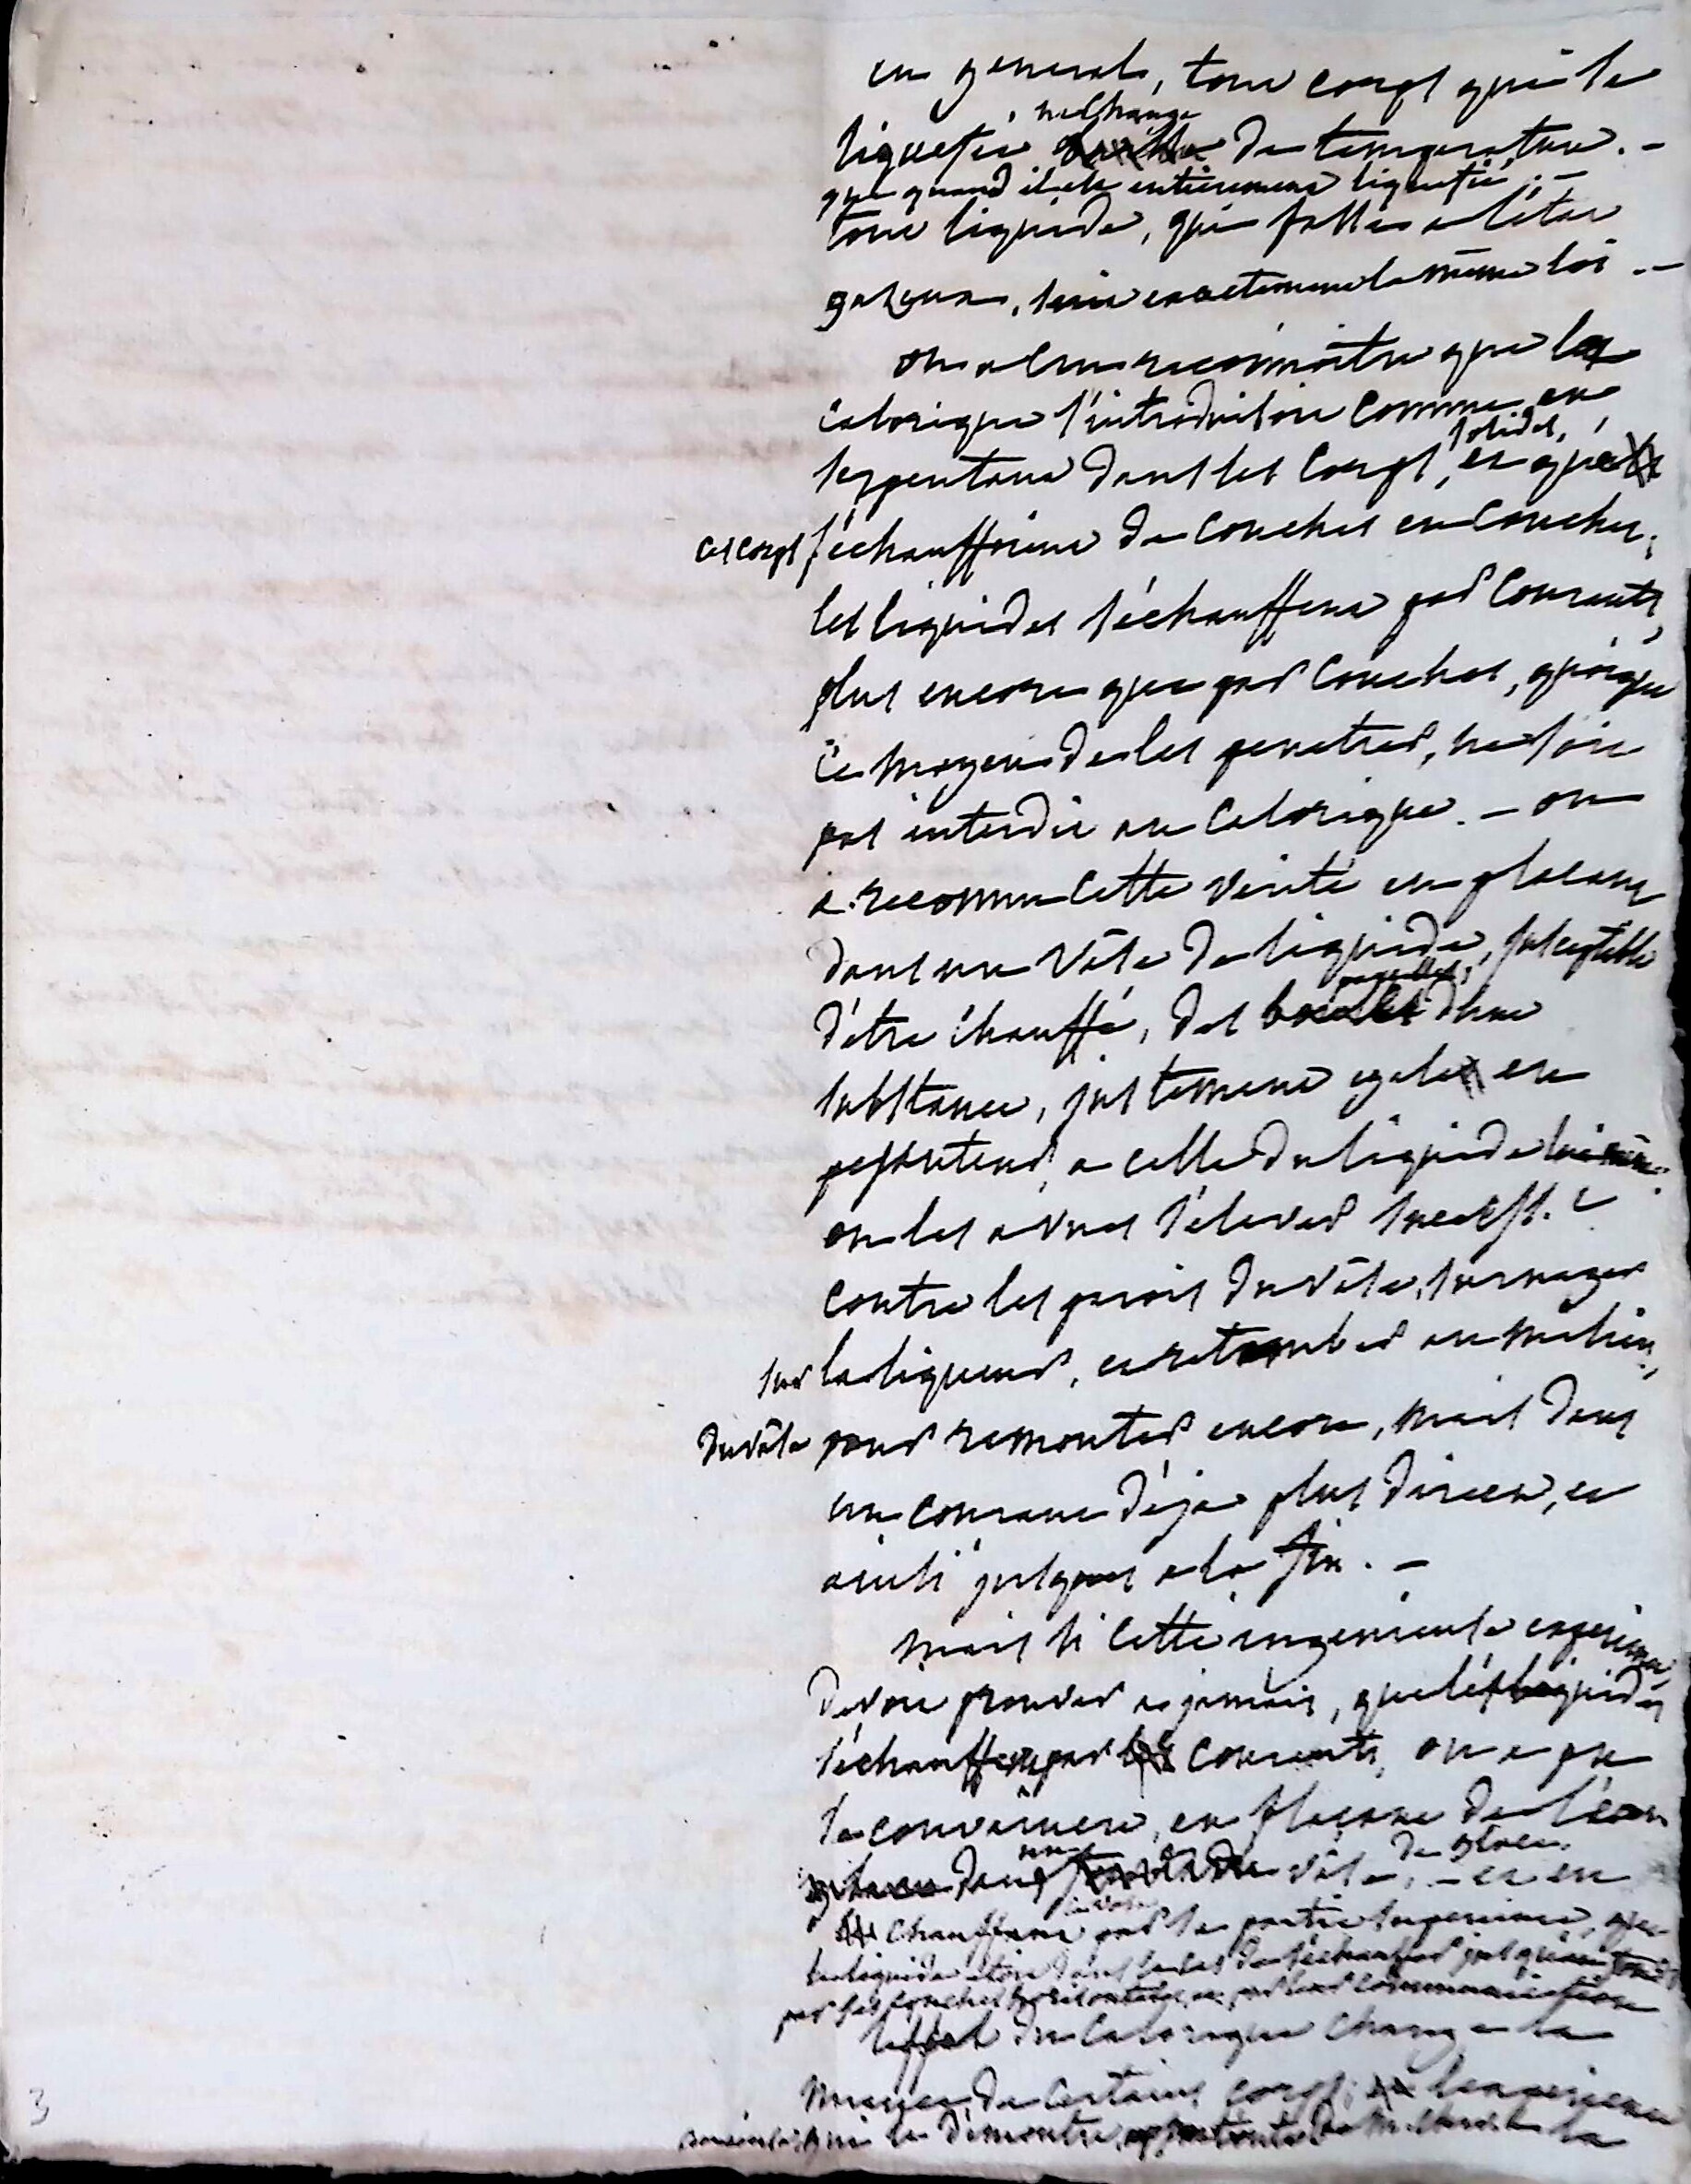 en general, tout corps qui se
liquefie ne change de temperature. -
que quand il est entierement liquefié. -
tout liquide, qui passe a l'état
gazeux, suit exactement la même loi. -
on a cru reconnoître que le
calorique s'introduisoit comme en
serpentant dans les corps solides, et que
ces corps s'échauffoient de couches en couches.
les liquides s'échauffent par courants,
plus encore que par couches, quoique
ce moyen de les penetrer, ne soit
pas interdit au calorique. - on
a reconnu cette verité en plaçant
dans un vâse de liquide, susceptible
d'être échauffé, des parcelles d'une
substance, justement egale en
pesanteur, a celle du liquide lui même.
on les a vues s'élever success.t
contre les parois du vâse, surnager
sur la liqueur, et retomber au milieu,
du vâse pour remonter encore, mais dans
un courant déja plus direct, et
ainsi jusques a la fin. -
mais si cette ingenieuse experience
devoit prouver a jamais, que les liquides
s'échauffent par courants, on a pu
se convaincre, en plaçant de l'eau
dans un vâse de glace. - et en
chauffant par la partie superieure, que
le liquide étoit dans le cas de s'échauffer jusqu'au fond
par ses couches horisontales, et par leur communication
l'effet du calorique change la
nuance de certains corps; l'experience
qui le démontre, la
3